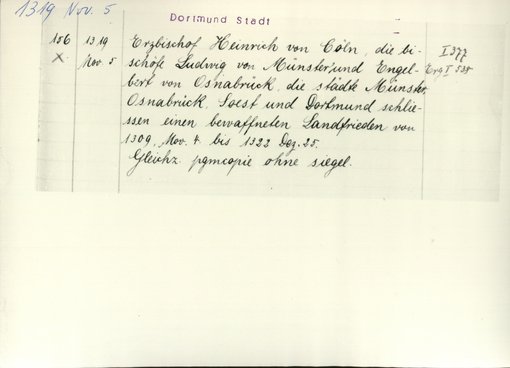 1319 Nov. 5
Dortmund Stadt
156 1319 Erzbischof Heinrich von Cöln, die bi- I 377
X Nov. 5 schöfe Ludwig von Münster und Engel- Erg I 535
bert von Osnabrück, die städte Münster,
Osnabrück, Soest und Dortmund schlie-
ssen einen bewaffneten Landfrieden von
1309, Nov. 4 bis 1322 Dez. 25.
Gleichz. pgmcopie ohne siegel.